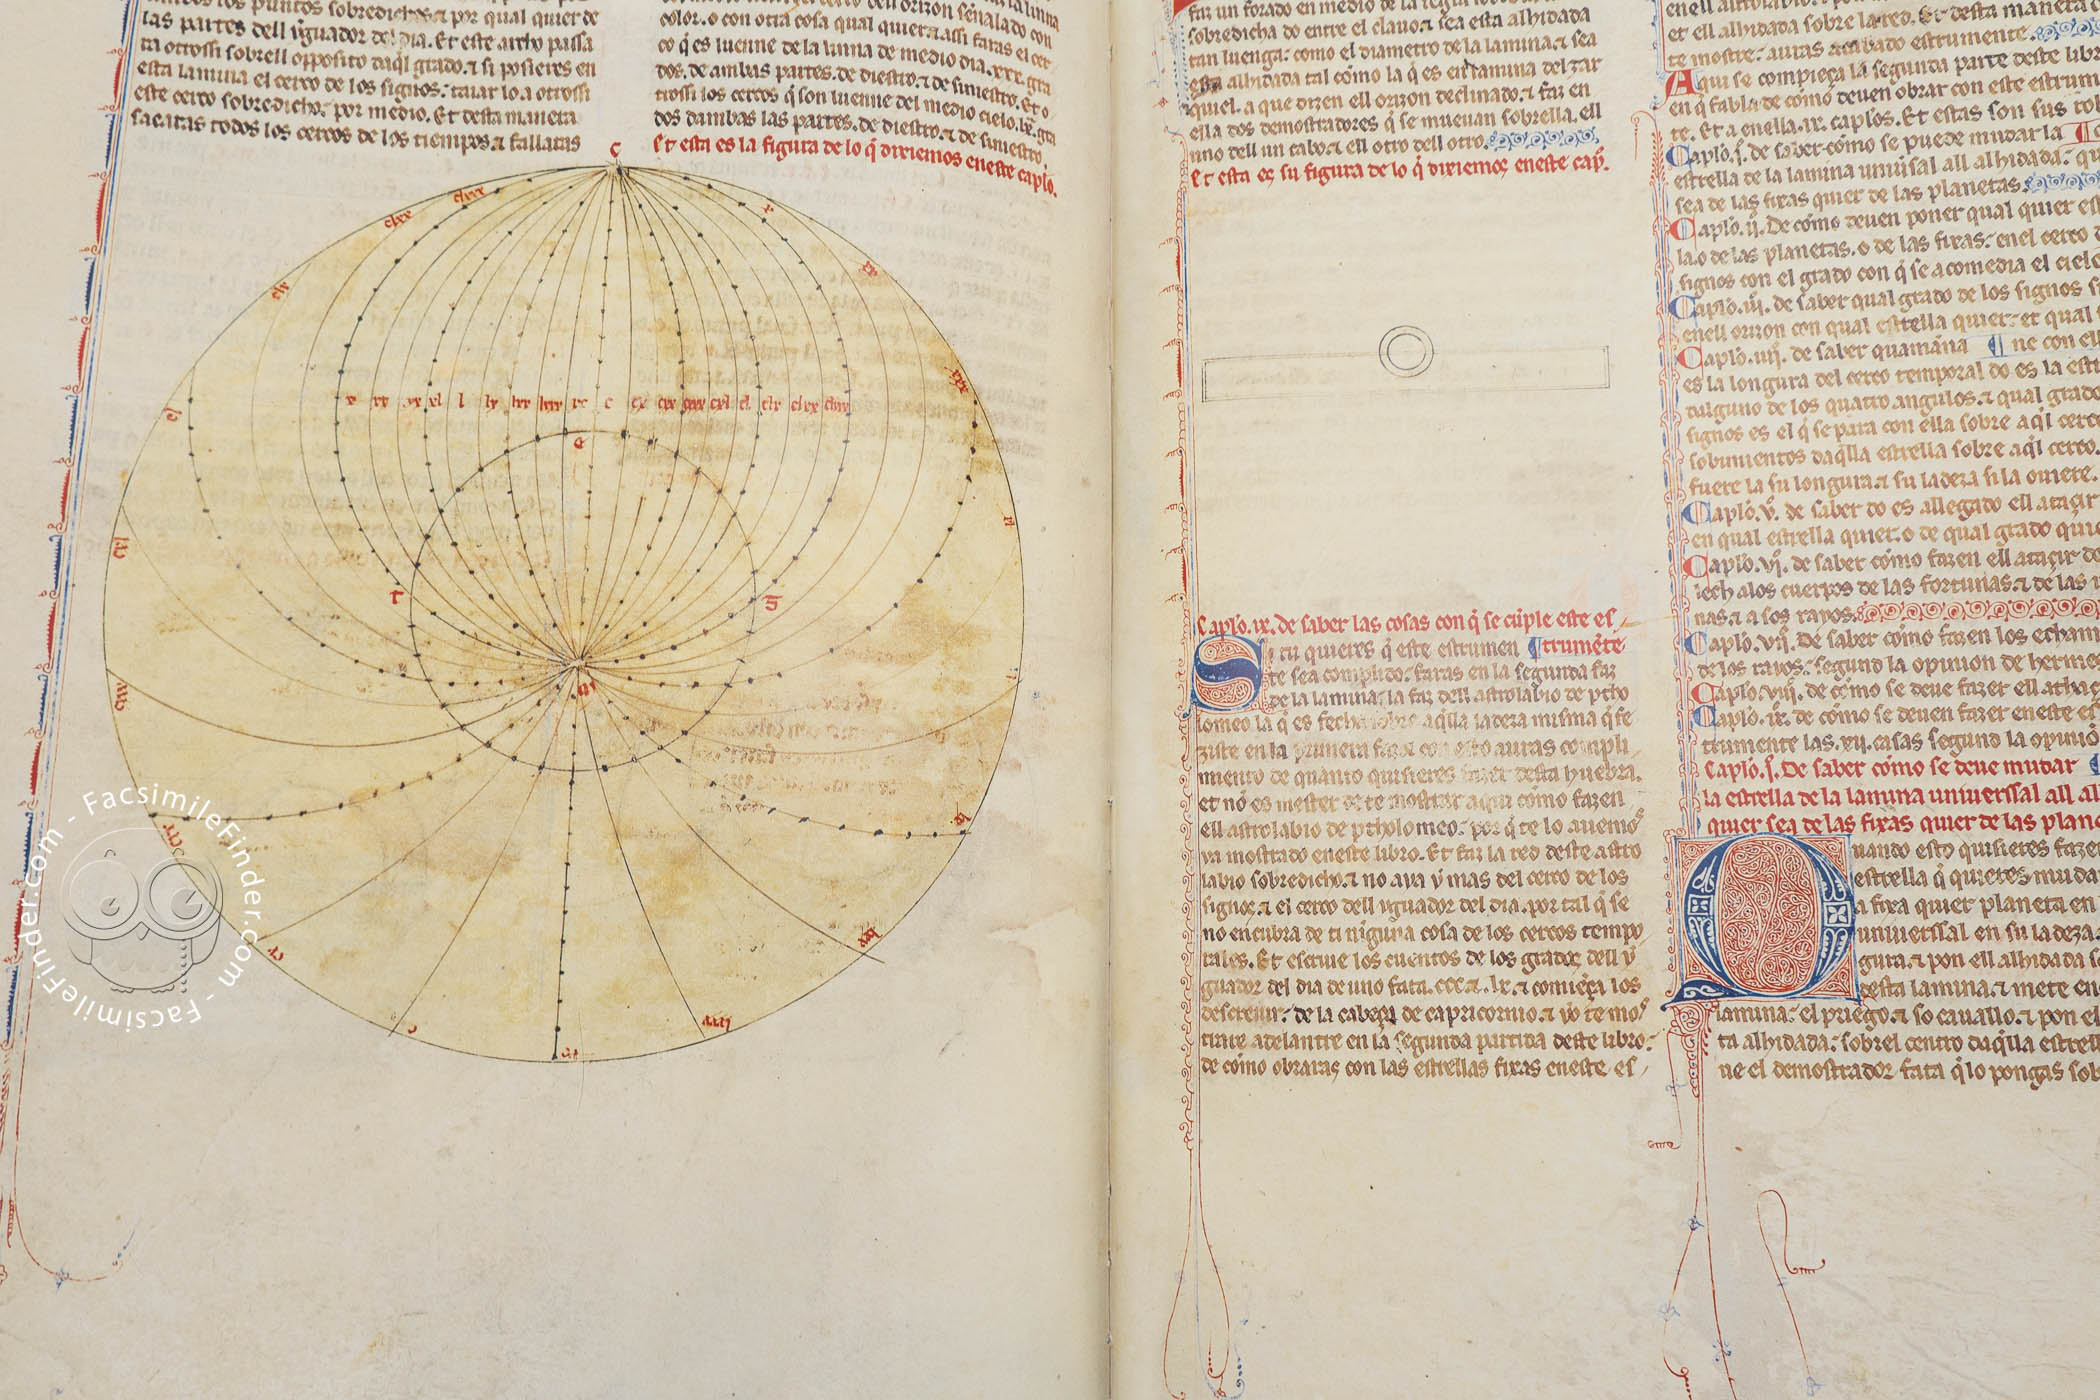 las partes dell yguador del dia. Et este archo passa
ta otrossi sobrell opposito daq̃l grado. ⁊ si posieres en
esta lamina el cerco de los signos: taiar lo a otrossi
este cerco sobredicho: por medio. Et desta manera
sacaras todos los cercos de los tiempos. ⁊ fallaras
color. o con otra cosa qual quier. ⁊ assi faras el cer
co q̃ es luenne de la linna de medio dia. xxx. gra
dos. de ambas partes. de diestro. ⁊ de siniestro. Et o
trossi los cercos q̃ son luenne del medio cielo. lx. gra
dos dambas las partes. de diestro. ⁊ de siniestro.
Et esta es la figura de lo q̃ dixiemos en este caplo.
faz un forado en medio de la regla
sobredicha do entre el clauo. ⁊ sea esta alhidada
tan luenga: como el diametro de la lamina. ⁊ sea
esta alhidada tal como la q̃ es en lamina del zar
quiel. a que dizen ell orizon declinado. ⁊ faz en
ella dos demostradores q̃ se mueuan sobrella. ell
uno dell un cabo. ⁊ ell otro dell otro.
Et esta es su figura de lo q̃ dixiemos en este cap̃.
Caplo. ix. de saber las cosas con q̃ se cũple este es
trumẽte
Si tu quieres q̃ este estrumen
te sea complido: faras en la segunda faz
de la lamina: la faz dell astrolabio de ptho
lomeo la q̃ es fecha sobre aq̃lla ladeza misma q̃ fe
ziste en la primera faz. ⁊ con esto auras compli
miento de quanto quisieres fazer desta huebra.
et nõ es mester de te mostrar aqui cómo fazen
ell astrolabio de ptholomeo: por q̃ te lo auemos
ya mostrado en este libro. Et faz la red deste astro
labio sobredicho. ⁊ no aya y mas del cerco de los
signos. ⁊ el cerco dell yguador del dia. por tal q̃ se
no encubra de ti ninguna cosa de los cercos tempo
rales. Et escriue los cuentos de los grados dell y
guador del dia de uno fata. ccc. ⁊. lx. ⁊ comiẽça los
descreuir: de la cabeça de capricornio. ⁊ yo te mos
trare adelantre en la segunda partida deste libro:
de cómo obraras con las estrellas fixas en este es
et ell alhidada sobre la red. Et desta manera
te mostre: auras acabado estrumente.
Aqui se compieça la segunda parte deste libr
en q̃ fabla de cómo deuen obrar con este estrum
te. Et a en ella. ix. caplos. Et estas son sus
Caplo. j̃. de saber cómo se puede mudar la
estrella de la lamina uniũsal all alhidada:
sea de las fixas quier de las planetas.
Caplo. ij̃. De cómo deuen poner qual quier es
la. o de las planetas. o de las fixas: en el cerco
signos con el grado con q̃ se acomedia el ciel
Caplo. iij̃. de saber qual grado de los signos
en ell orizon con qual estrella quier: et qual
Caplo. iiij̃. de saber quamãna ¶ ne con ell
es la longura del cerco temporal do es la est
dalguno de los quatro angulos. ⁊ qual grado
signos es el q̃ se para con ella sobre aq̃l cerco
sobimientos daq̃lla estrella sobre aq̃l cerco.
fuere la su longura. ⁊ su ladeza si la ouiere.
Caplo. v̄. de saber do es allegado ell ataçir
en qual estrella quier. o de qual grado qui
Caplo. vj̃. de saber cómo fazen ell ataçir
lech a los cuerpos de las fortunas. ⁊ de las
nas. ⁊ a sos rayos.
Caplo. vij̃. De saber cómo fazen los echam
de los rayos: segund la opinion de hermes
Caplo. viij̃. de cómo se deue fazer ell
Caplo. ix̃. de cómo se deuen fazer en este es
trumente las. xij. casas segund la opiniõ
Caplo. j̃. De saber cómo se deue mudar
la estrella de la lamina uniuerssal all al
quier sea de las fixas quier de las plane
Quando esto quisieres fazer
estrella q̃ quieres muda
a fixa quier planeta en
uniuerssal en su ladeza
gura. ⁊ pon ell alhidada
desta lamina. ⁊ mete en
lamina: el priego. ⁊ so cauallo. ⁊ pon el
ta alhidada: sobrel centro daq̃lla estrell
ue el demostrador fata q̃ lo pongas sob
FacsimileFinder.com - FacsimileFinder.com -